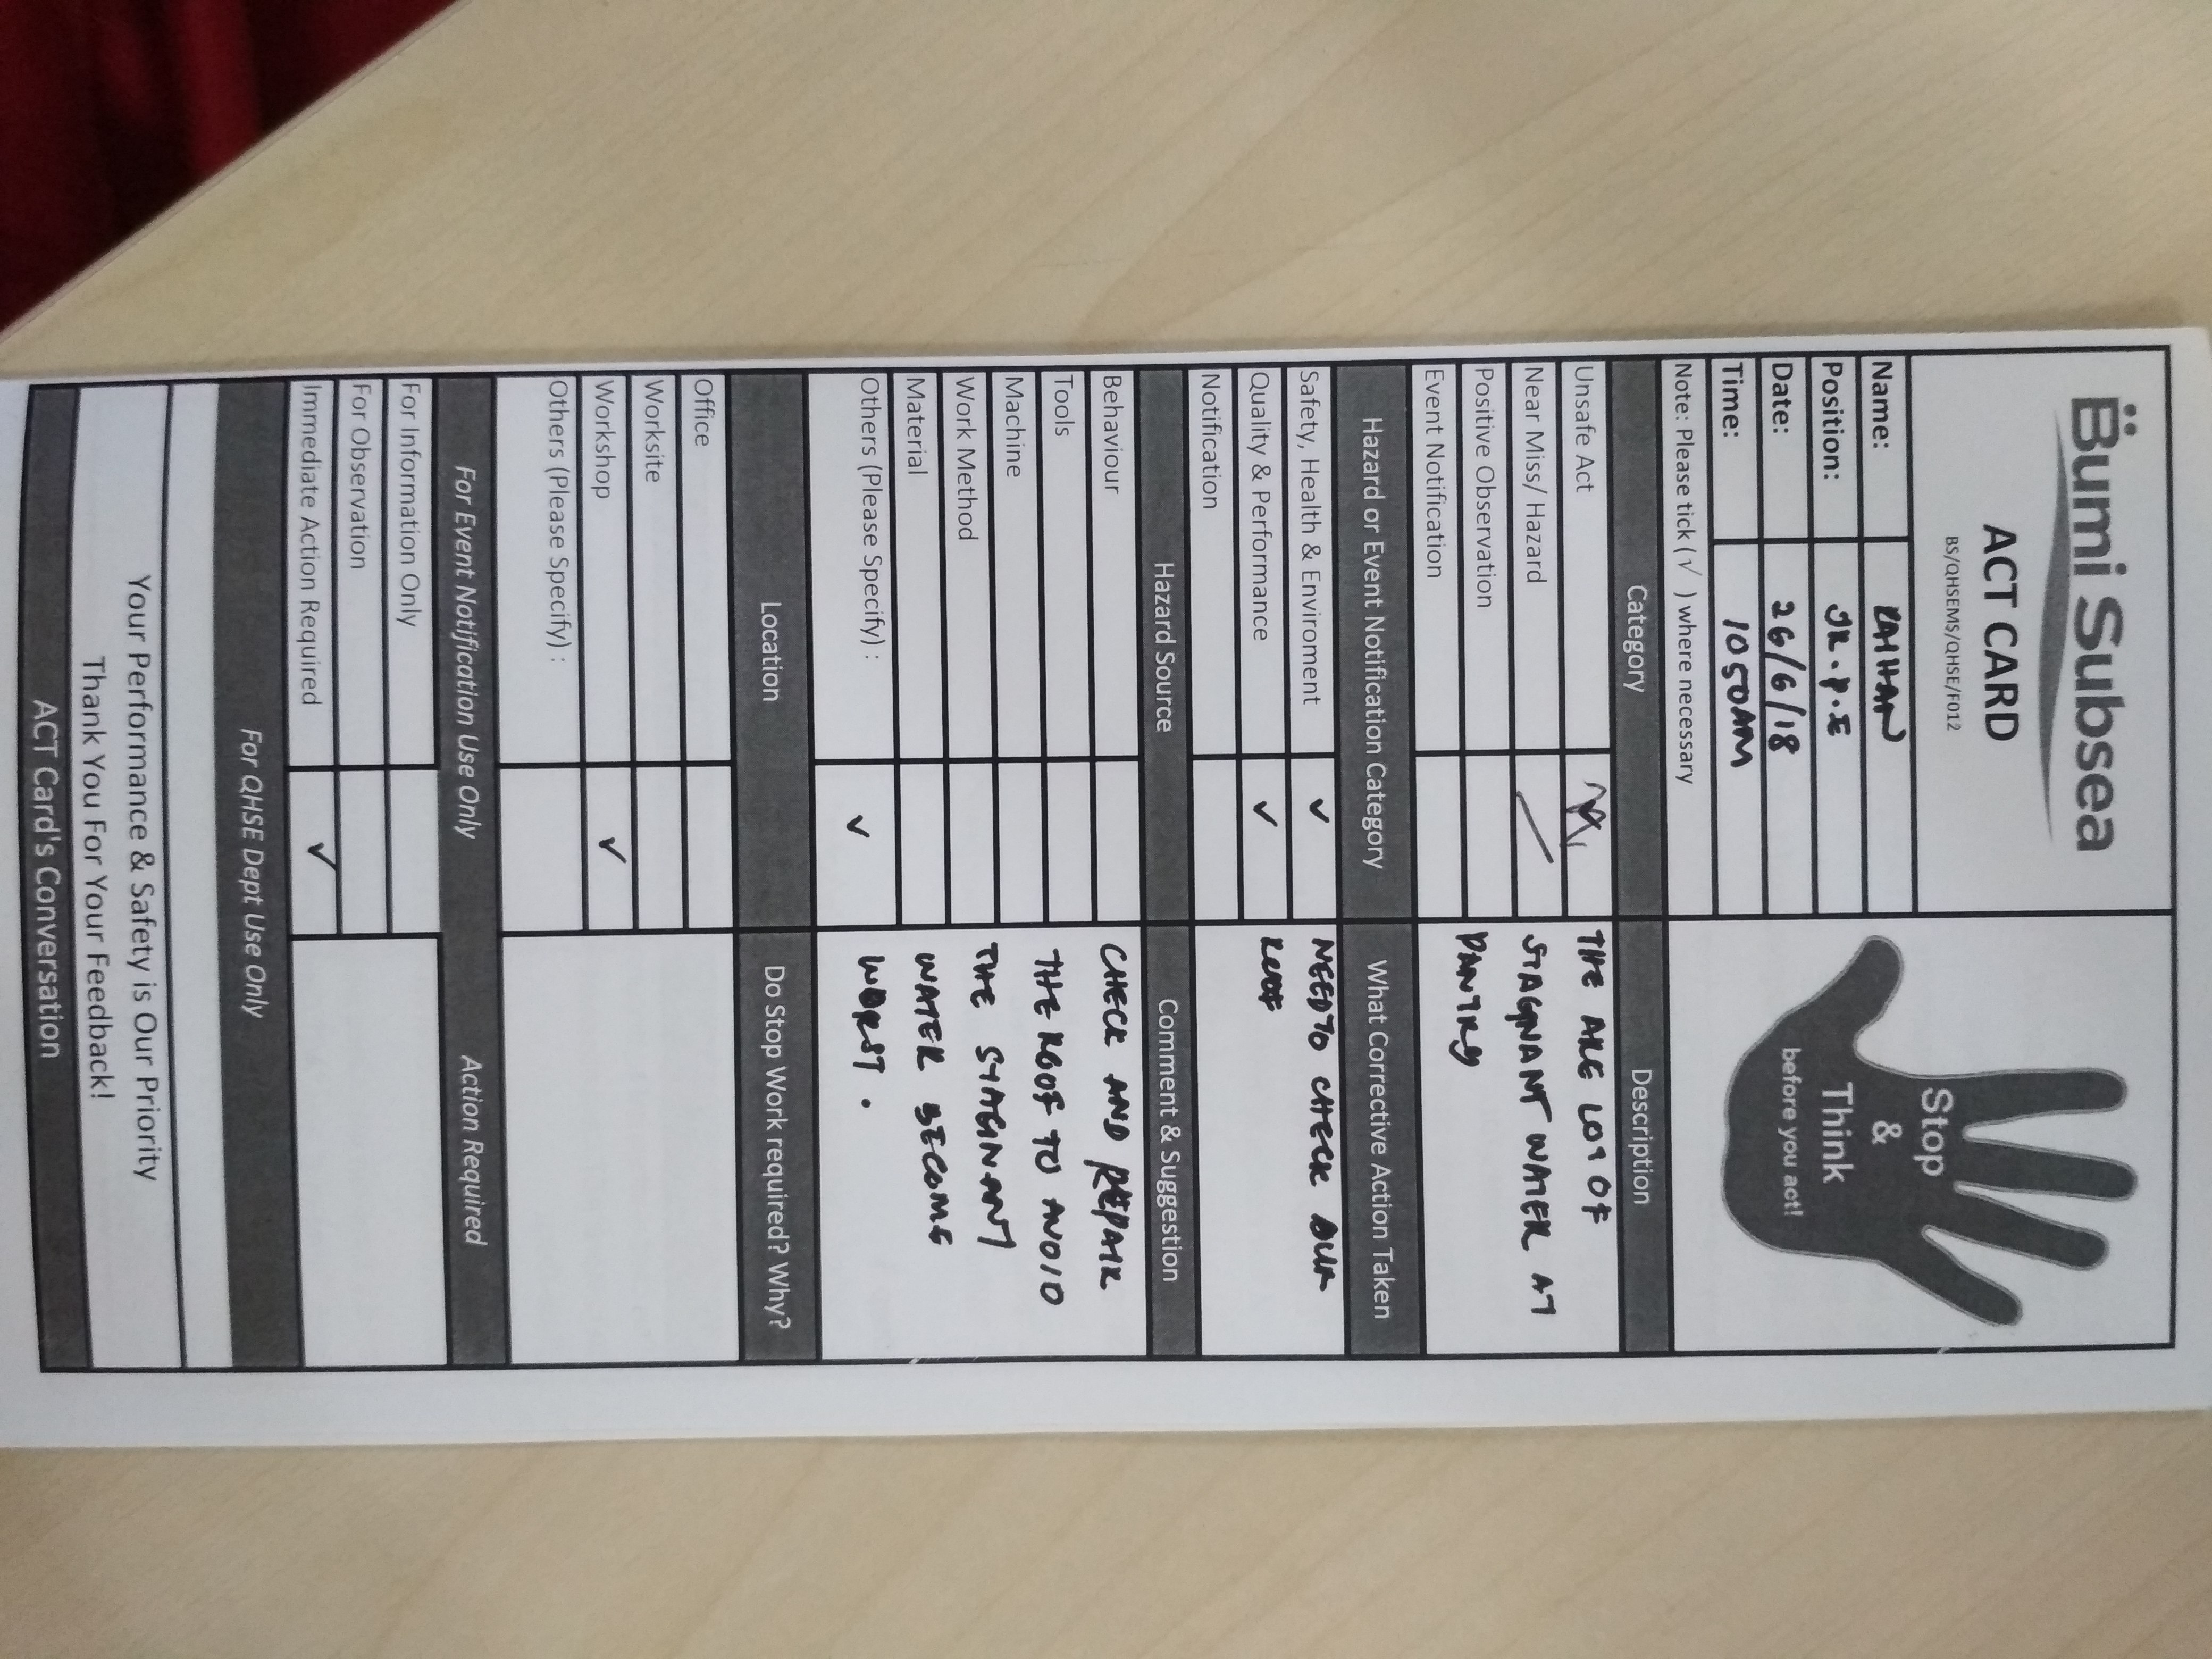 Bumi Subsea
ACT CARD
BS/QHSEMS/QHSE/F012
Stop
&
Think
before you act!
Name:
Position: JR.P.E
Date: 26/6/18
Time: 1050AM
Note: Please tick (√ ) where necessary
Category Description
Unsafe Act THE ARE LOT OF
Near Miss/ Hazard STAGNANT WATER AT
Positive Observation PANTRY
Event Notification
Hazard or Event Notification Category What Corrective Action Taken
Safety, Health & Enviroment ✓ NEED TO CHECK OUR
Quality & Performance ✓ ROOF
Notification
Hazard Source Comment & Suggestion
Behaviour CHECK AND REPAIR
Tools THE ROOF TO AVOID
Machine THE STAGNANT
Work Method WATER BECOME
Material WORST.
Others (Please Specify) : ✓
Location Do Stop Work required? Why?
Office
Worksite
Workshop ✓
Others (Please Specify) :
For Event Notification Use Only Action Required
For Information Only
For Observation
Immediate Action Required ✓
For QHSE Dept Use Only
Your Performance & Safety is Our Priority
Thank You For Your Feedback!
ACT Card's Conversation